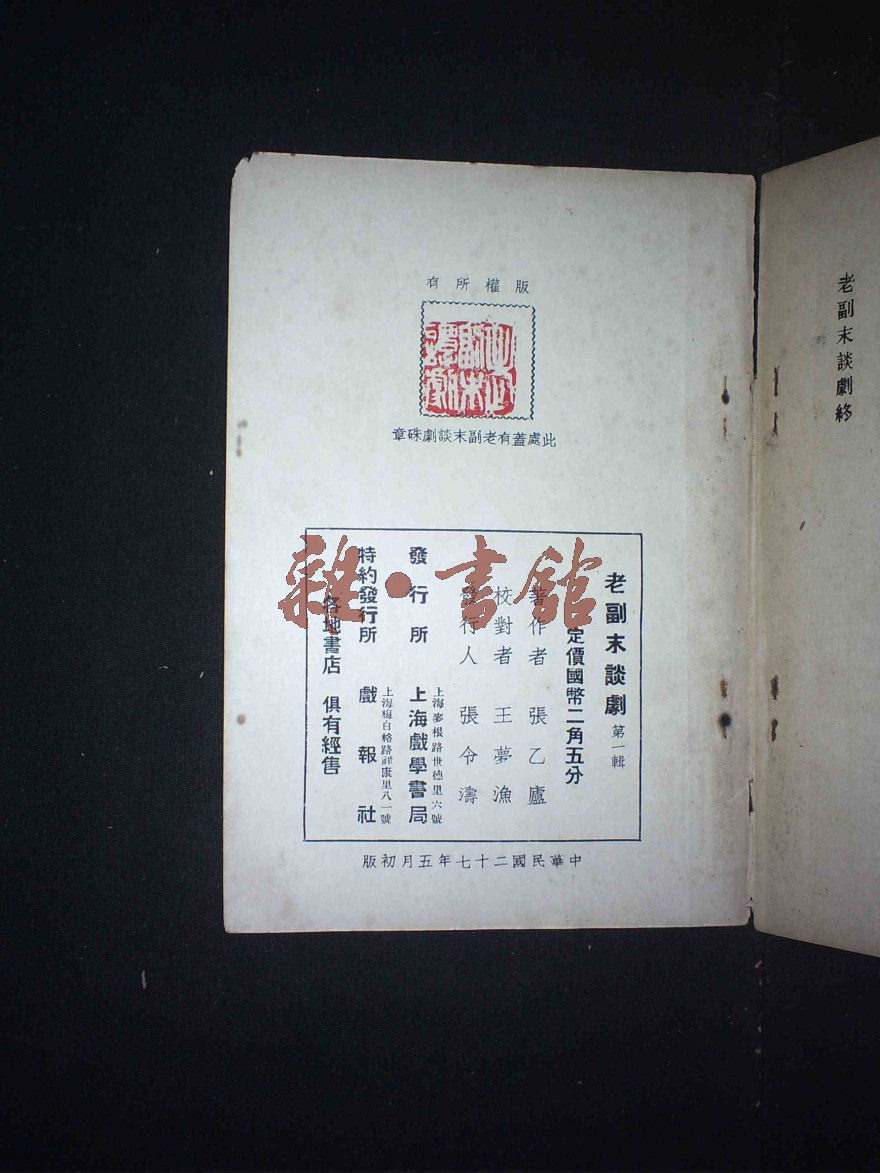 老副末談劇終
版權所有
此處蓋有老副末談劇硃章
老副末談劇 第一輯
定價國幣二角五分
著作者 張乙廬
校對者 王夢漁
發行人 張令濤
上海麥根路世德里六號
發行所 上海戲學書局
上海梅白格路祥康里八一號
特約發行所 戲報社
各地書店 俱有經售
中華民國二十七年五月初版
雜·書館